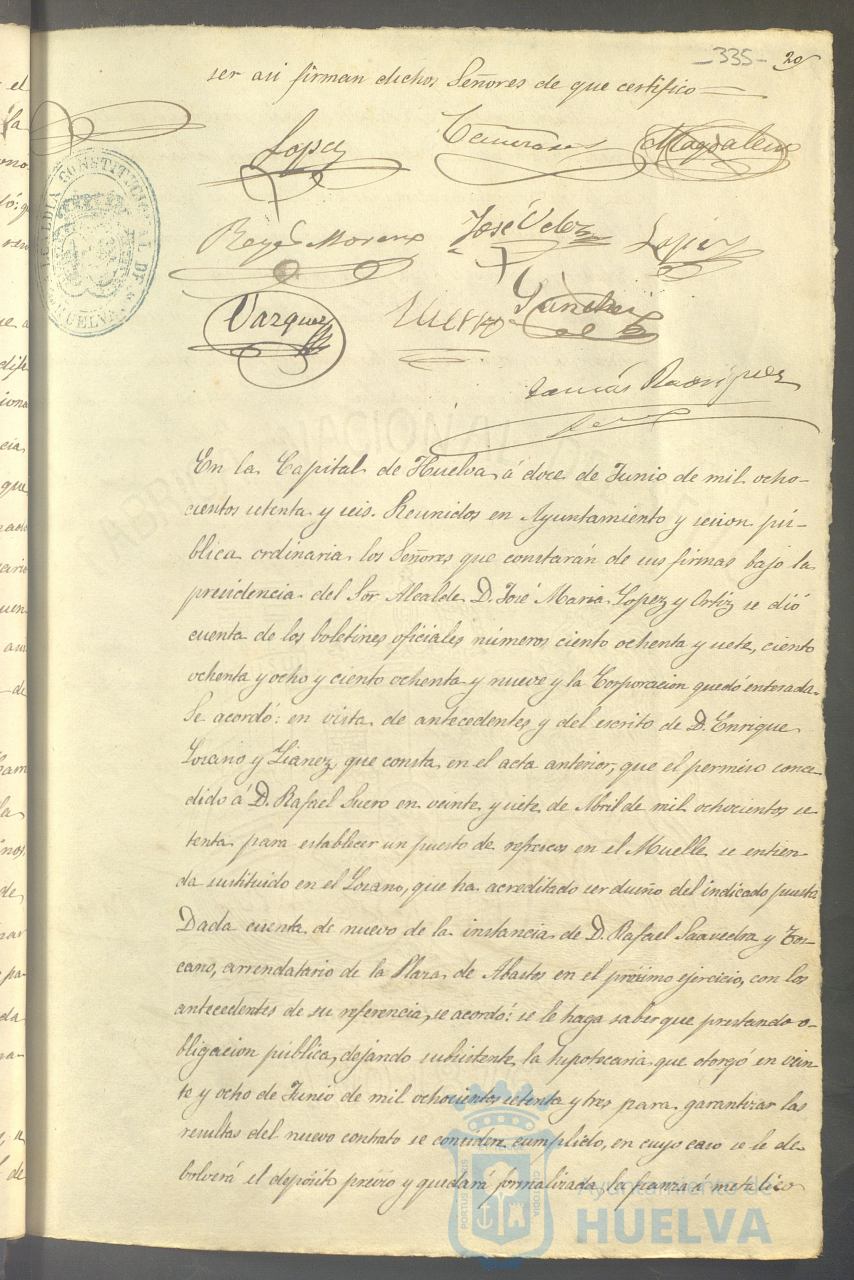 -335- 29
ser asi firman dichos Señores de que certifico
Lopez
Magdalena
Reyes Moreno José Velez Lopez
Vazquez Suero Sanchez
Tomás Rodriguez
ALCALDIA CONSTITUCIONAL DE HUELVA
En la Capital de Huelva á doce de Junio de mil ocho-
cientos setenta y seis. Reunidos en Ayuntamiento y sesion pú-
blica ordinaria los Señores que constarán de sus firmas bajo la
presidencia del Sor Alcalde D. José Maria Lopez y Ortiz se dió
cuenta de los boletines oficiales números ciento ochenta y siete, ciento
ochenta y ocho y ciento ochenta y nueve y la Corporacion quedó enterada.
Se acordó: en vista de antecedentes y del escrito de D. Enrique
Lozano y Liañez que consta en el acta anterior, que el permiso conce-
dido á D. Rafael Suero en veinte y siete de Abril de mil ochocientos se-
tenta para establecer un puesto de refrescos en el Muelle se entien
da sustituido en el Lozano, que ha acreditado ser dueño del indicado puesto
Dada cuenta de nuevo de la instancia de D. Rafael Saavedra y Tos-
cano, arrendatario de la Plaza de Abastos en el prósimo ejercicio, con los
antecedentes de su referencia, se acordó: se le haga saber que prestando o-
bligacion pública, dejando subsistente la hipotecaria que otorgó en vein-
te y ocho de Junio de mil ochocientos setenta y tres para garantizar las
resultas del nuevo contrato se considere cumplido, en cuyo caso se le de-
bolverá el depósito previo y quedará formalizada la fianza á metalico
PORTUS MARIS ET TERRAE CUSTODIA
Ayuntamiento de
HUELVA